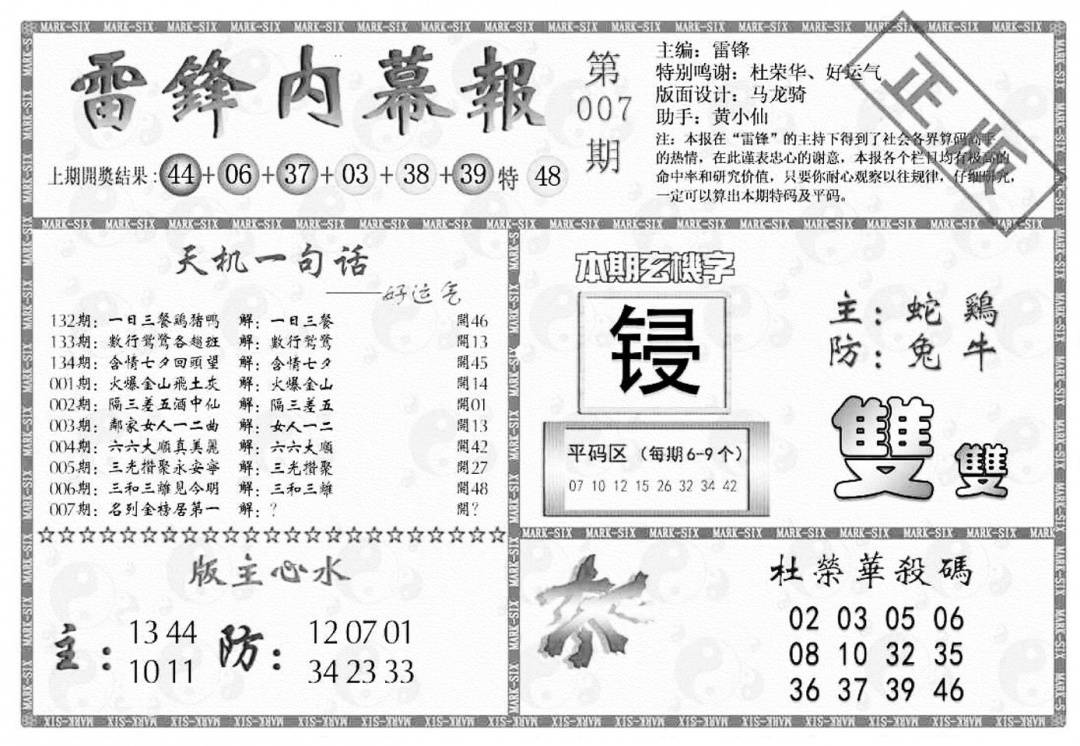 雷鋒内幕報
第
007
期
主编：雷锋
特别鸣谢：杜荣华、好运气
版面设计：马龙骑
助手：黄小仙
注：本报在“雷锋”的主持下得到了社会各界算码高手
的热情，在此谨表忠心的谢意，本报各个栏目均有极高的
命中率和研究价值，只要你耐心观察以往规律，仔细研究，
一定可以算出本期特码及平码。
正版
上期開獎结果：44+06+37+03+38+39特 48
天机一句话
——好运气
132期：一日三餐鷄猪鸭 解：一日三餐 開46
133期：數行鴛鴦各趐班 解：數行鴛鴦 開13
134期：含情七夕回頭望 解：含情七夕 開45
001期：火爆金山飛土灰 解：火爆金山 開14
002期：隔三差五酒中仙 解：隔三差五 開01
003期：鄰家女人一二曲 解：女人一二 開13
004期：六六大順真美麗 解：六六大順 開42
005期：三光攒聚永安寧 解：三光攒聚 開27
006期：三和三離見今明 解：三和三離 開48
007期：名列金榜居第一 解：？ 開？
本期玄機字
锓
平码区（每期6-9个）
07 10 12 15 26 32 34 42
主：蛇 鷄
防：兔 牛
雙 雙
版主心水
主：13 44
10 11
防：12 07 01
34 23 33
杀
杜榮華殺碼
02 03 05 06
08 10 32 35
36 37 39 46
MARK-SIX